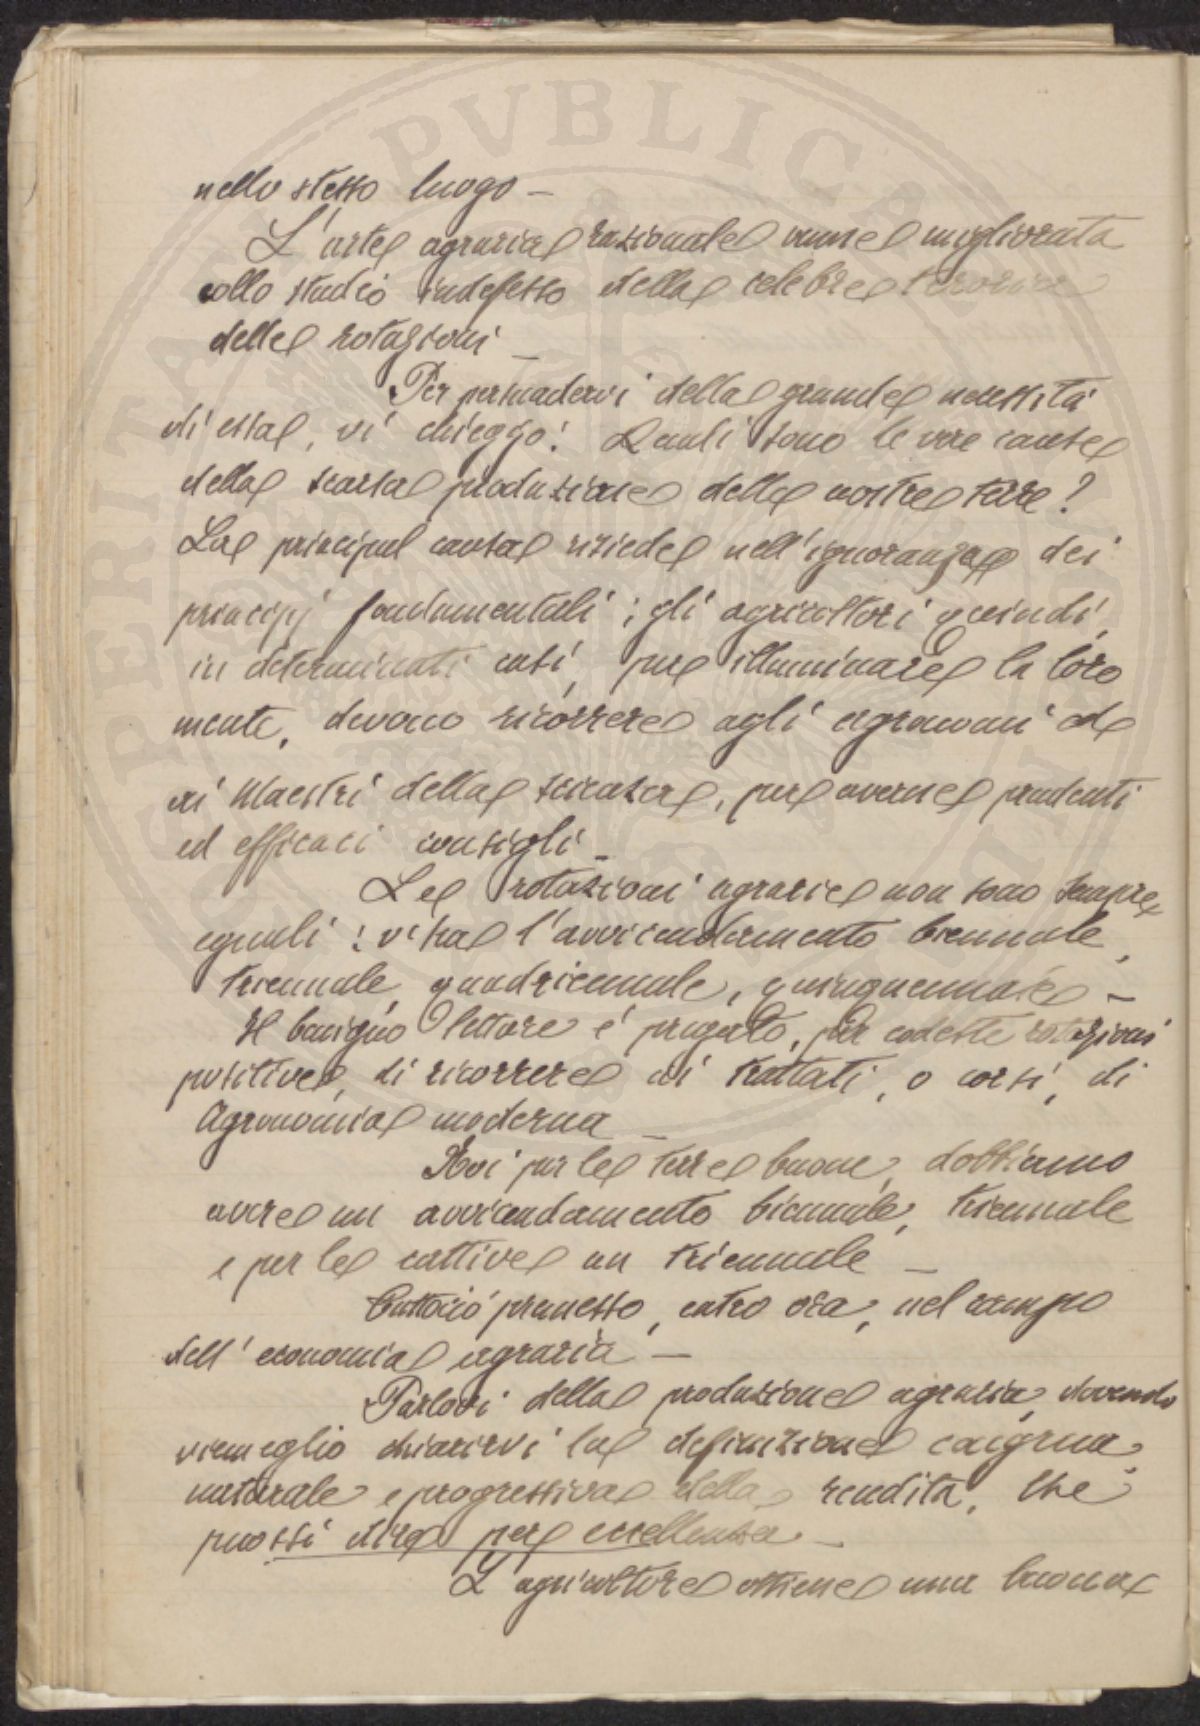 nello stesso luogo –
L'arte agraria razionale venne migliorata
collo studio indefesso della celebre teoria
delle rotazioni –
Per persuadervi della grande necessità
di essa, vi chieggo: Quali sono le vere cause
della scarsa produzione delle nostre terre?
La principal causa risiede nell'ignoranza dei
principj fondamentali; gli agricoltori quindi,
in determinati casi, per illuminare la loro
mente, devono ricorrere agli agronomi ed
ai Maestri della scienza, per averne prudenti
ed efficaci consigli –
Le rotazioni agrarie non sono sempre
eguali: vi ha l'avvicendamento biennale,
triennale, quadriennale, quinquennale –
Il benigno lettore è pregato, per codeste rotazioni
positive, di ricorrere ai trattati, o corsi, di
Agronomia moderna –
Noi per le terre buone, dobbiamo
avere un avvicendamento biennale, triennale
e per le cattive un triennale –
Tuttociò premesso, entro ora, nel campo
dell'economia agraria –
Parlovi della produzione agraria, dovendo
viemeglio chiarirvi la definizione congrua,
naturale e progressiva della rendita, che
puossi dire per eccellenza –
L'agricoltore ottiene una buona